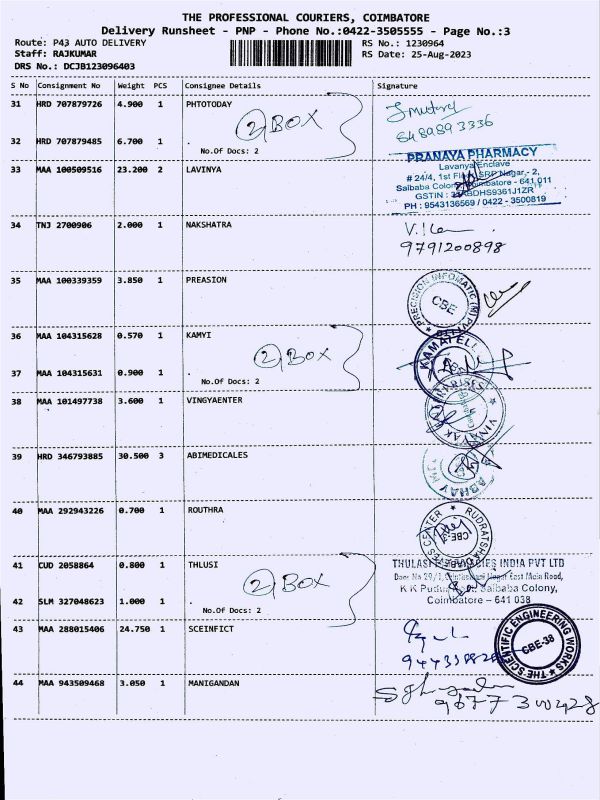 THE PROFESSIONAL COURIERS, COIMBATORE
Delivery Runsheet - PNP - Phone No.:0422-3505555 - Page No.:3
Route: P43 AUTO DELIVERY RS No.: 1230964
Staff: RAJKUMAR RS Date: 25-Aug-2023
DRS No.: DCJB123096403
S No Consignment No Weight PCS Consignee Details Signature
31 HRD 707879726 4.900 1 PHTOTODAY
2 BOX
32 HRD 707879485 6.700 1 .
No.Of Docs: 2
33 MAA 100509516 23.200 2 LAVINYA
PRANAYA PHARMACY
Lavanya Enclave
# 24/4, 1st SRP Nagar - 2,
Saibaba Colony, Coimbatore - 641 011
GSTIN :
PH : 9543136569 / 0422 - 3500819
34 TNJ 2700906 2.000 1 NAKSHATRA
9791200898
35 MAA 100339359 3.850 1 PREASION
PRECISION INFOMATIC (M) PVT
CBE
36 MAA 104315628 0.570 1 KAMYI
2 BOX
37 MAA 104315631 0.900 1 .
No.Of Docs: 2
38 MAA 101497738 3.600 1 VINGYAENTER
39 HRD 346793885 30.500 3 ABIMEDICALES
40 MAA 292943226 0.700 1 ROUTHRA
41 CUD 2058864 0.800 1 THLUSI
2 BOX
THULASI INDIA PVT LTD
East Main Road,
Saibaba Colony,
Coimbatore - 641 038
42 SLM 327048623 1.000 1 .
No.Of Docs: 2
43 MAA 288015406 24.750 1 SCEINFICT
THE SCIENTIFIC ENGINEERING WORKS
CBE-38
44 MAA 943509468 3.050 1 MANIGANDAN